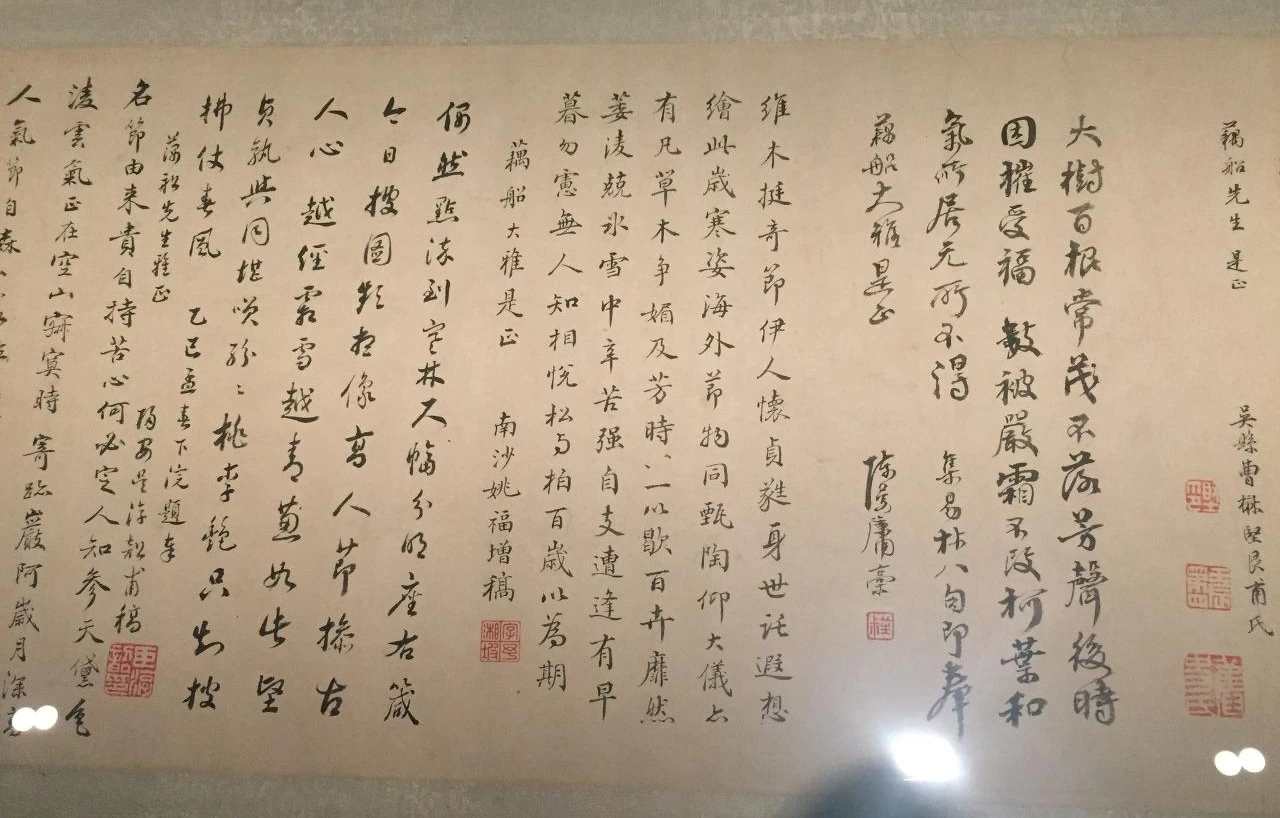 藕船先生是正
吳縣曹楙堅艮甫氏
大樹百根常茂不落芳聲後時
因摧受福數被嚴霜不改柯葉和
氣所居无所不得 集易林八句即奉
藕船大雅是正
維木挺奇節伊人懷貞蕤身世託遐想
繪此歲寒姿海外節物同甄陶仰大儀亦
有凡草木爭媚及芳時一一以歇百卉靡然
萎淩兢氷雪中辛苦强自支遭逢有早
暮勿慮無人知相悅松与柏百歲以為期
藕船大雅是正 南沙姚福增稿
分明座右箴
今日披圖 想像高人節操古
人心 越經霜雪越青蔥 如此堅
貞孰與同堪笑紛紛桃李艷只知披
拂仗春風 乙巳孟春下浣題奉
藕船先生雅正
名節由来貴自持苦心何必定人知參天黛色
淩雲氣正在空山寂寞時 寄跡巖阿歲月深
人氣節自森